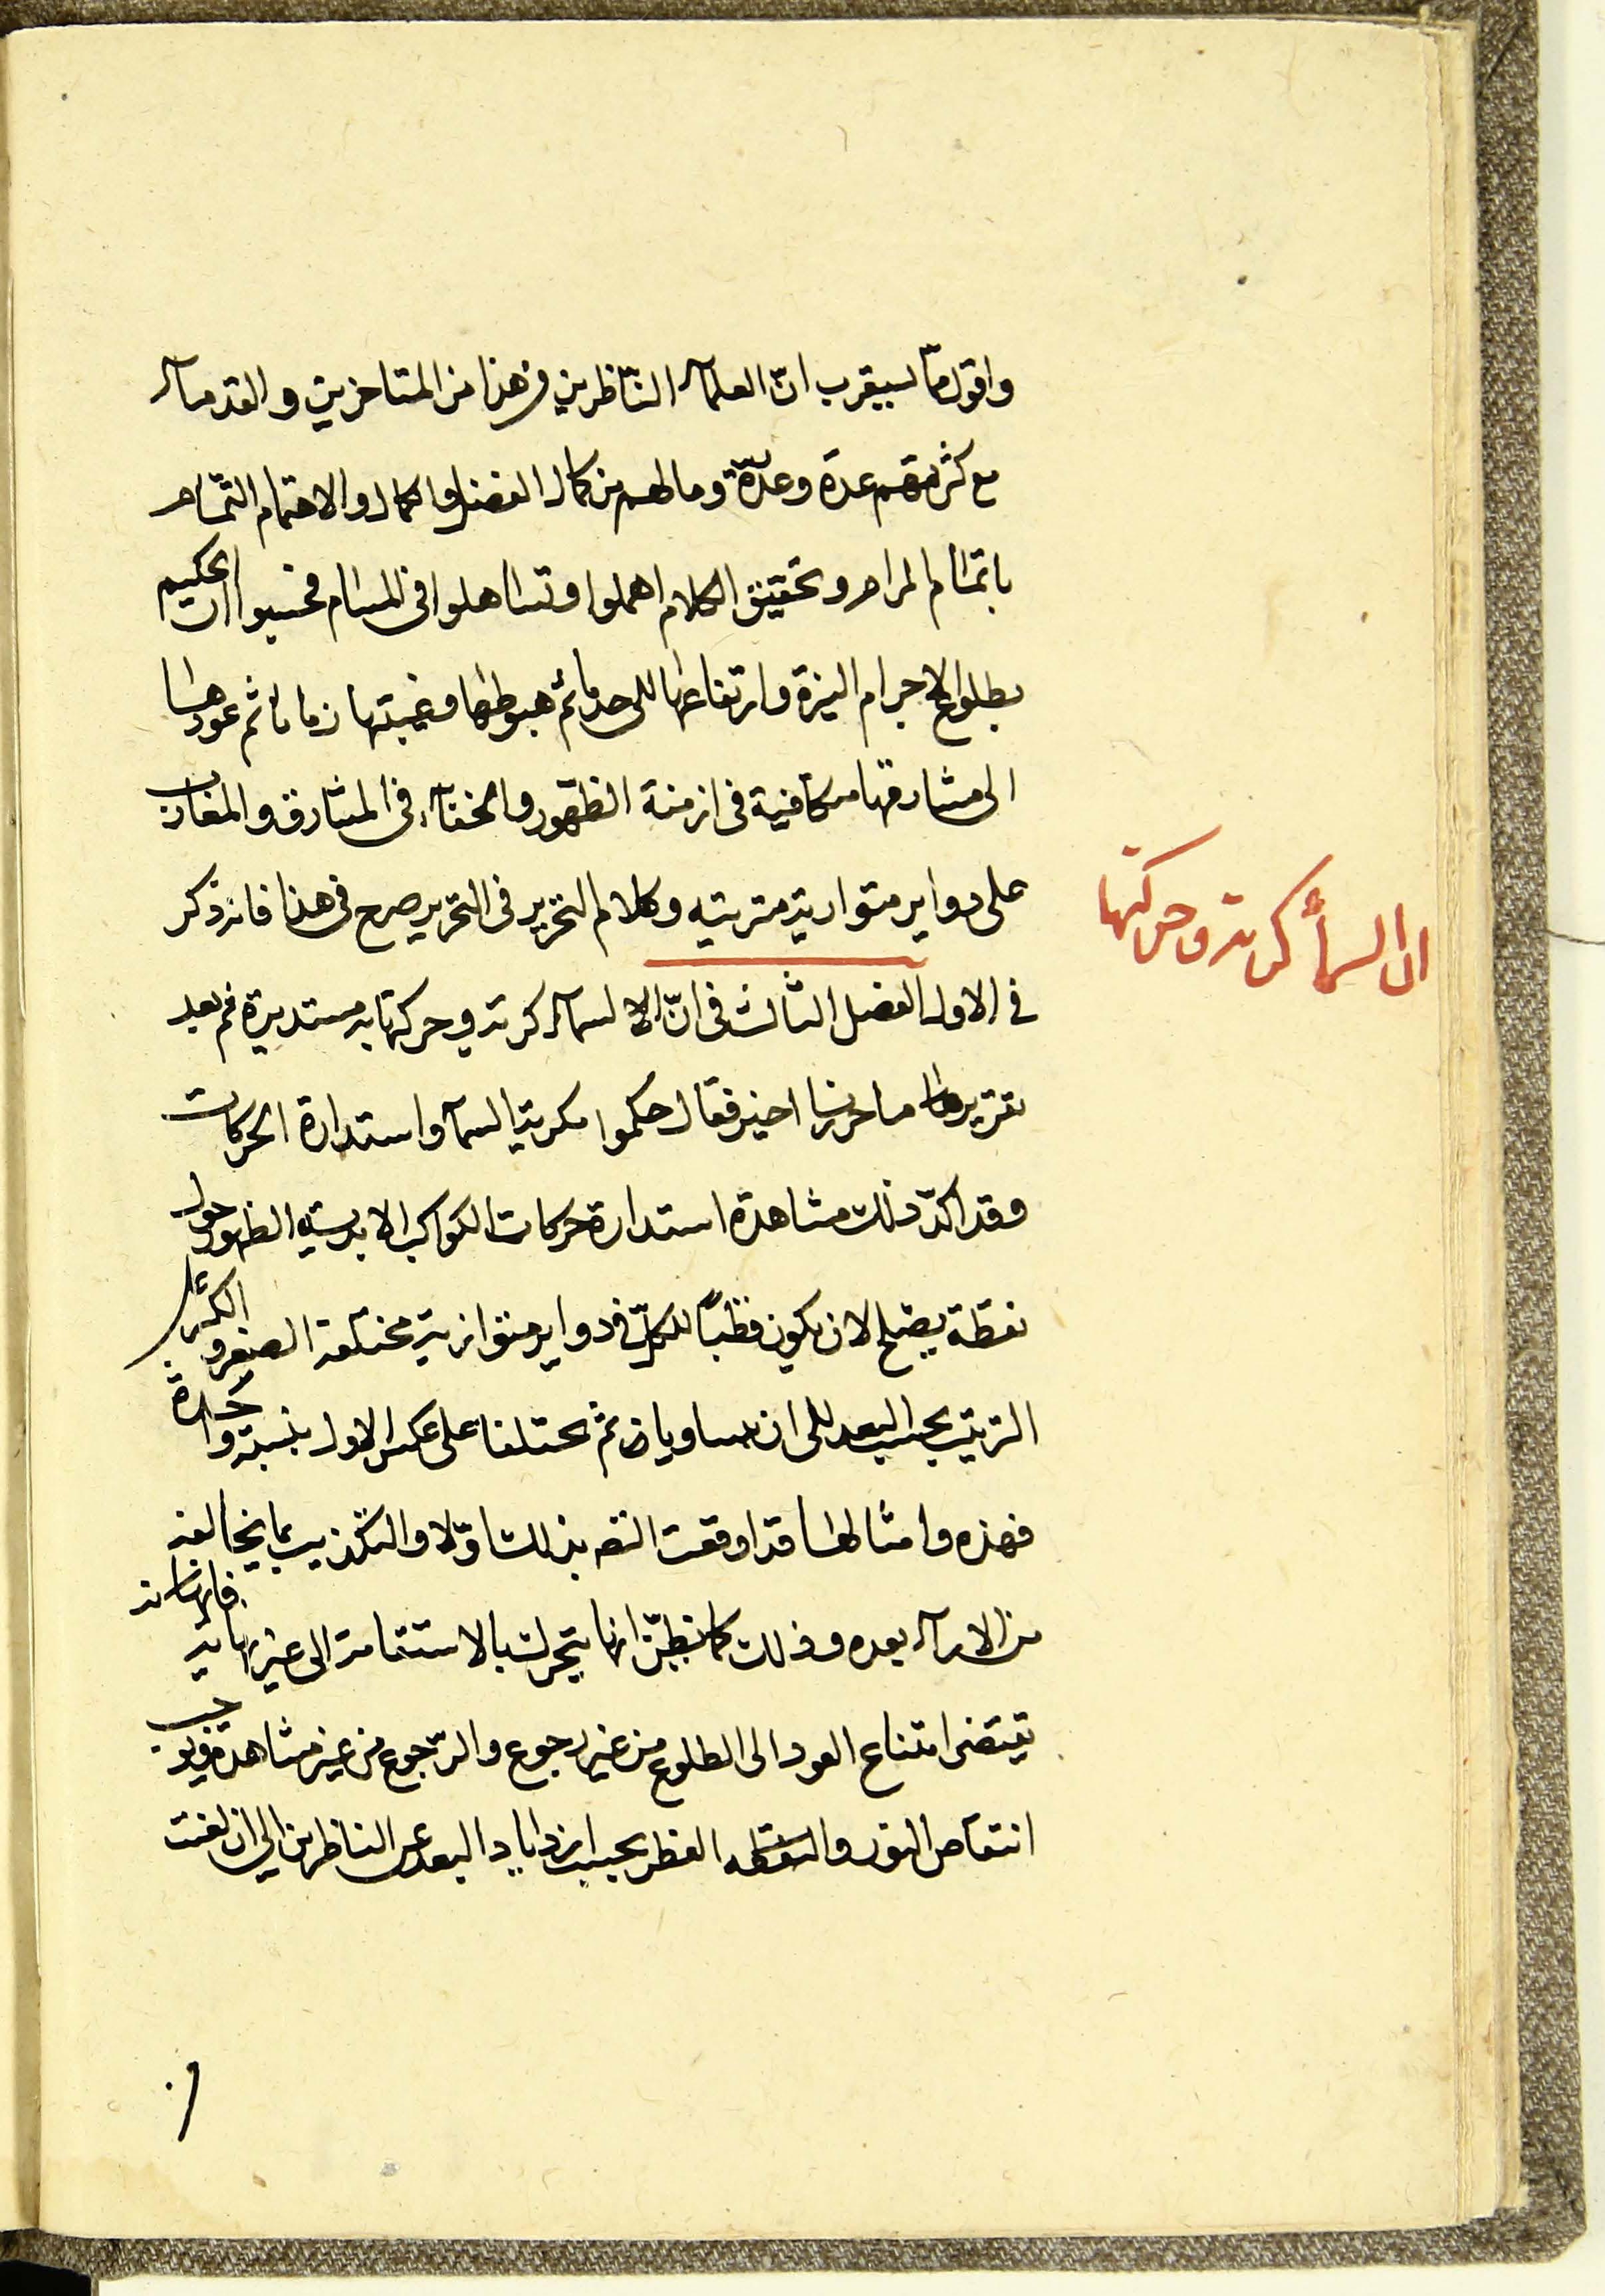 واقول مما سيقرب انّ العلمآء النّاظرين فى هذا من المتاخرين والقدمآء
مع كثرتهم عدة وعدّة وما لهم من كمال الفضل والكمال والاهتمام التّمام
باتمام المرام وتحقيق الكلام اهملوا وتساهلوا فى المسام فحسبوا ان الحكيم
بطلوع الاجرام النيرة وارتفاعها الى حد ما ثم هبوطها وغيبتها زمانا ثم عودها
الى مشارقها متكافية فى ازمنة الظّهور والخفآء فى المشارق والمغارب
على دواير متوازية مترتبه وكلام التحرير فى التحرير صرح فى هذا فانه ذكر
فى الاول الفصل الثالث فى انّ السمآء كرية وحركتها مستديرة ثم بعد
تقريرها ما حررنا اخير فقال حكموا بكرية السمآء واستدارة الحركات
وقد اكّد ذلك مشاهدة استدارة حركات الكواكب الابدية الظهور حول
نقطة يصلح لان يكون قطباً للكلّ فى دواير متوازية مختلفة الصغر و الكبر
الترتيب بحسب البعد الى ان يساويان ثم يختلفا على عكس الاول بنسبة واحدة
فهذه وامثالها قد اوقعت النفس بذلك اوّلا والتكذيب بما يخالفه
من الارآء بعده وذلك كما نظنّ انها يتحرك بالاستقامة الى غير نهاية فانها
تقتضى امتناع العود الى الطلوع من غير رجوع والرّجوع من غير مشاهدة ويوجب
انتقاص النور والعظم بحسب ازدياد البعد عن الناظرين الى ان
ان السمأ كرية وحركتها